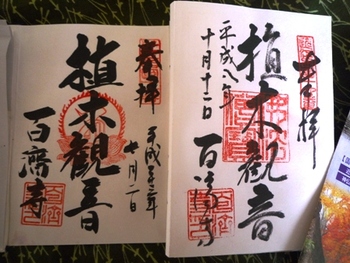 奉拝
平成二十三年
十月二日
植木観音
百済寺
奉拝
植木観音
平成八年
十月十二日
百済寺